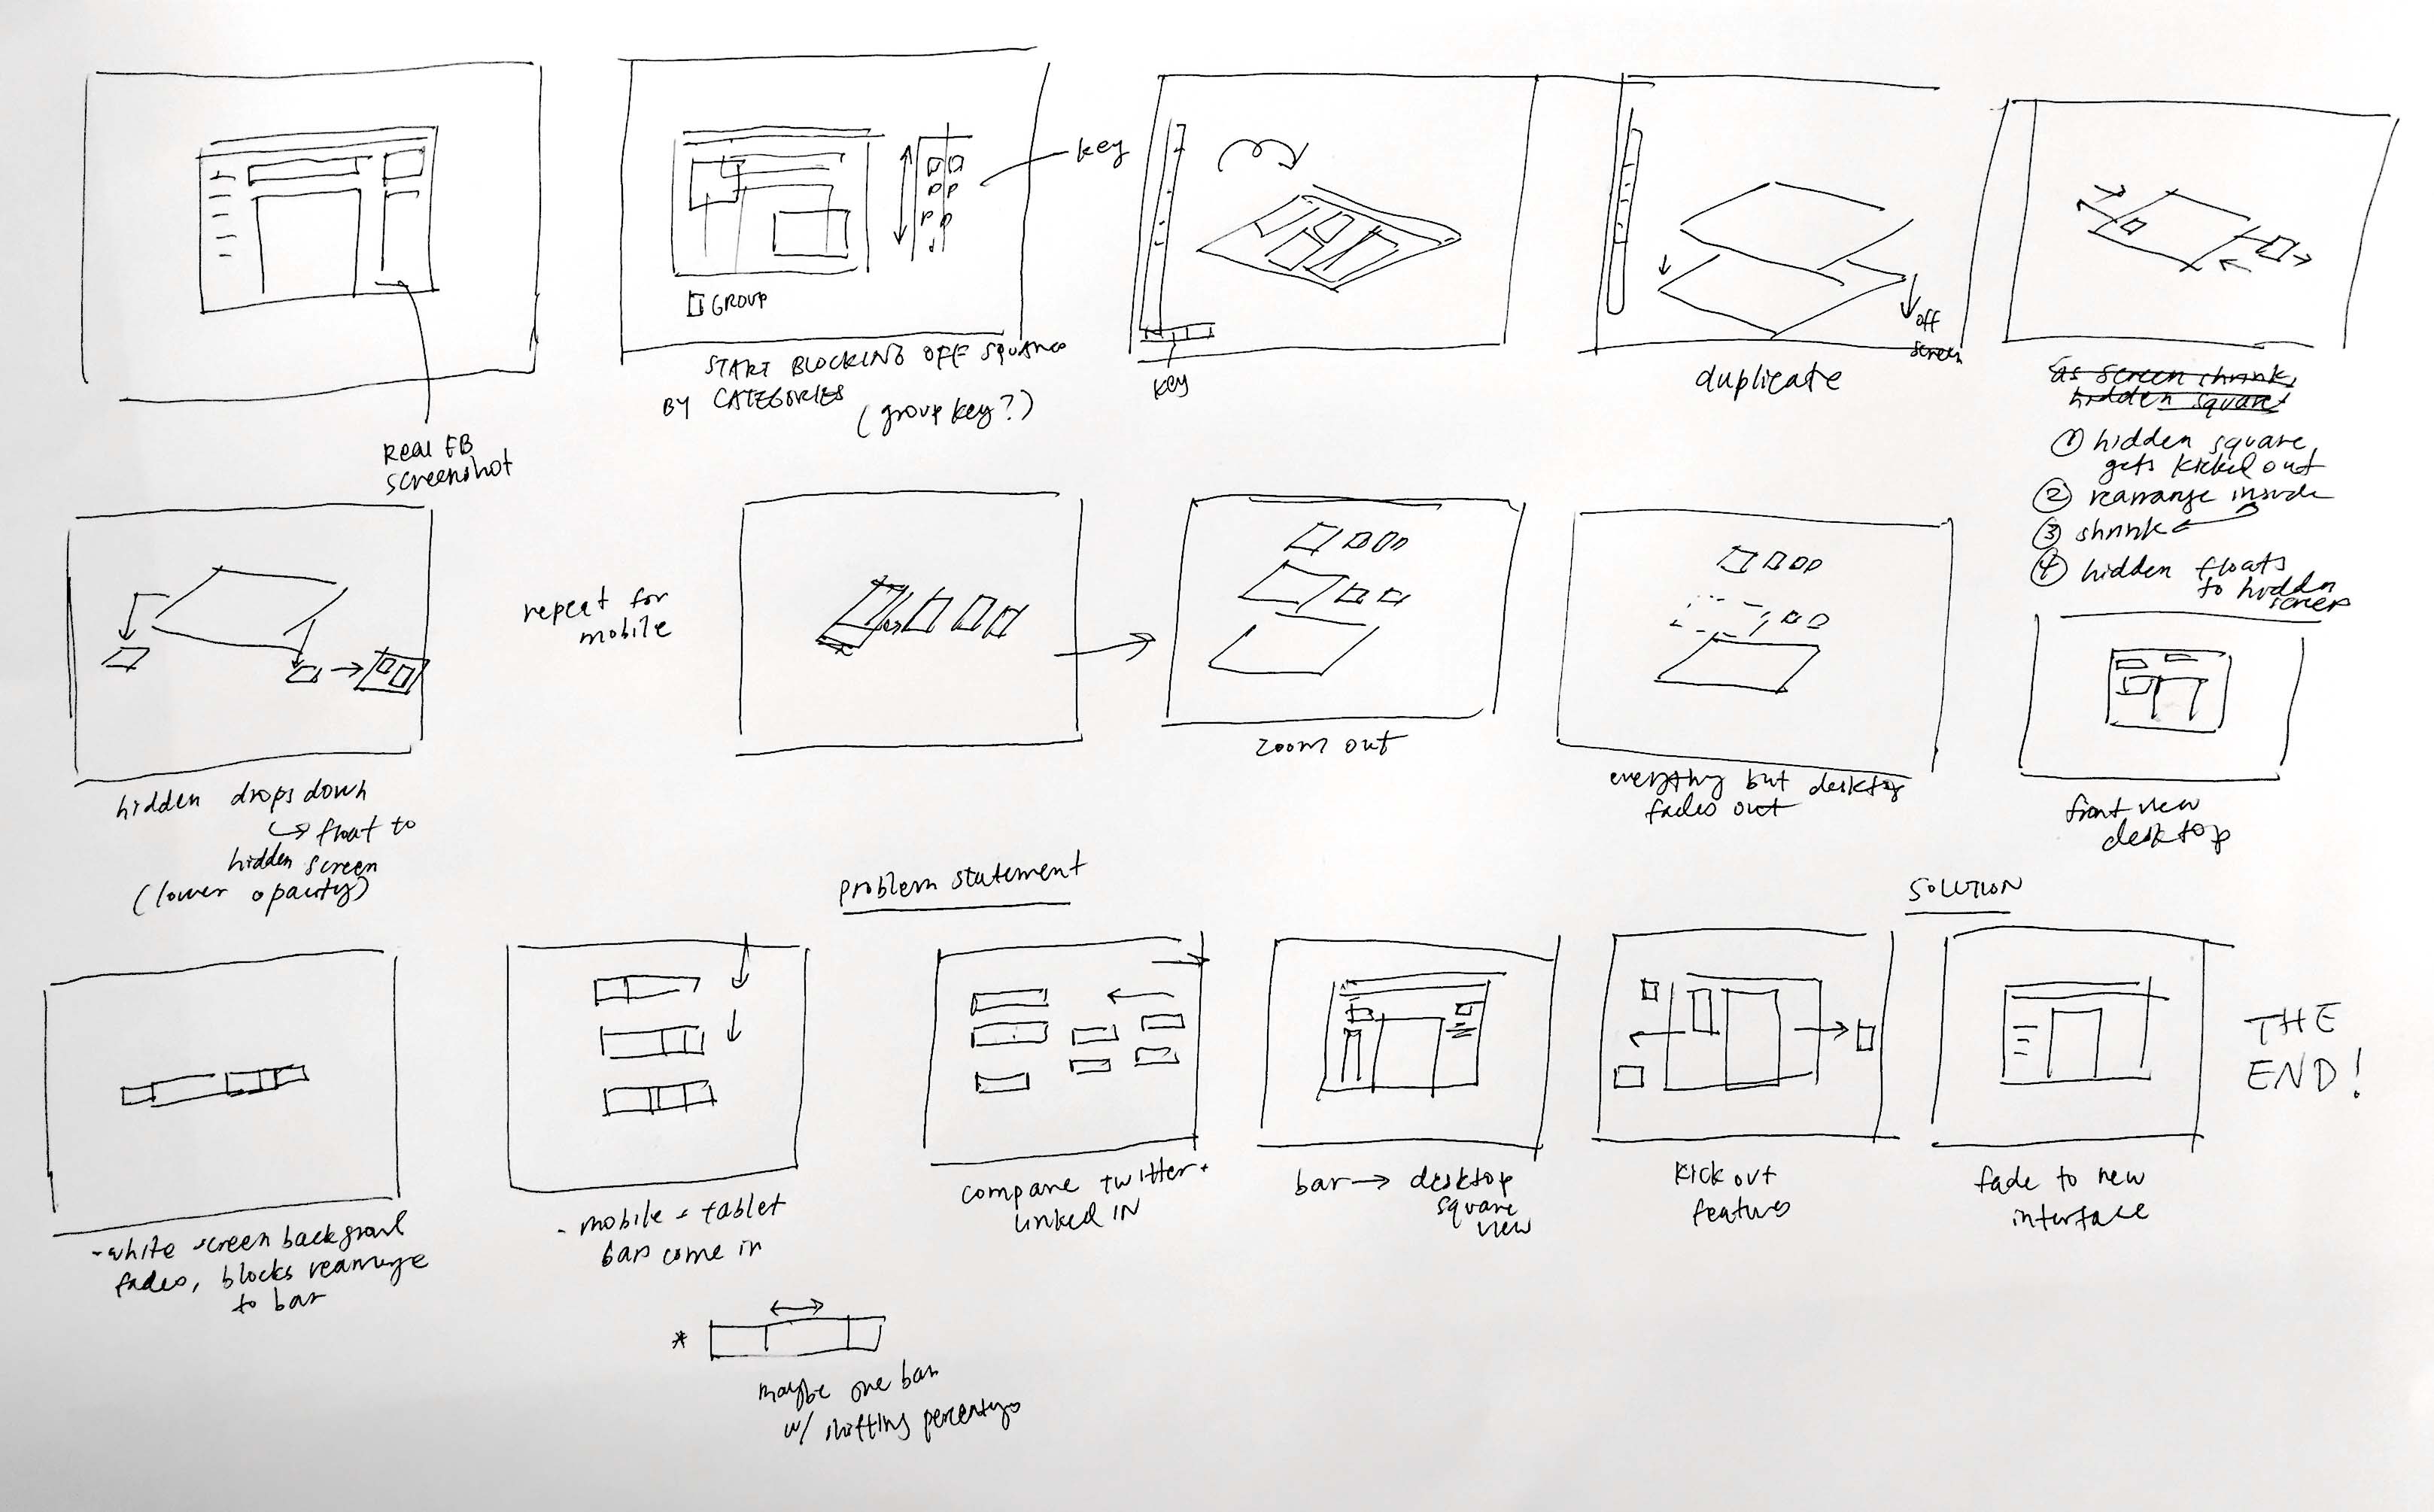 Real FB
screenshot
GROUP
START BLOCKING OFF squares
BY CATEGORIES
(group key?)
key
key
off
screen
duplicate
as screen shrink,
hidden square
① hidden square
gets kicked out
② rearrange inside
③ shrink
④ hidden floats
to hidden
screen
hidden drops down
float to
hidden screen
(lower opacity)
repeat for
mobile
zoom out
everything but desktop
fades out
front view
desktop
problem statement
SOLUTION
- white screen background
fades, blocks rearrange
to bar
- mobile + tablet
bars come in
* maybe one bar
w/ shifting percentages
compare twitter +
linked IN
bar → desktop
square
view
kick out
features
fade to new
interface
THE
END!